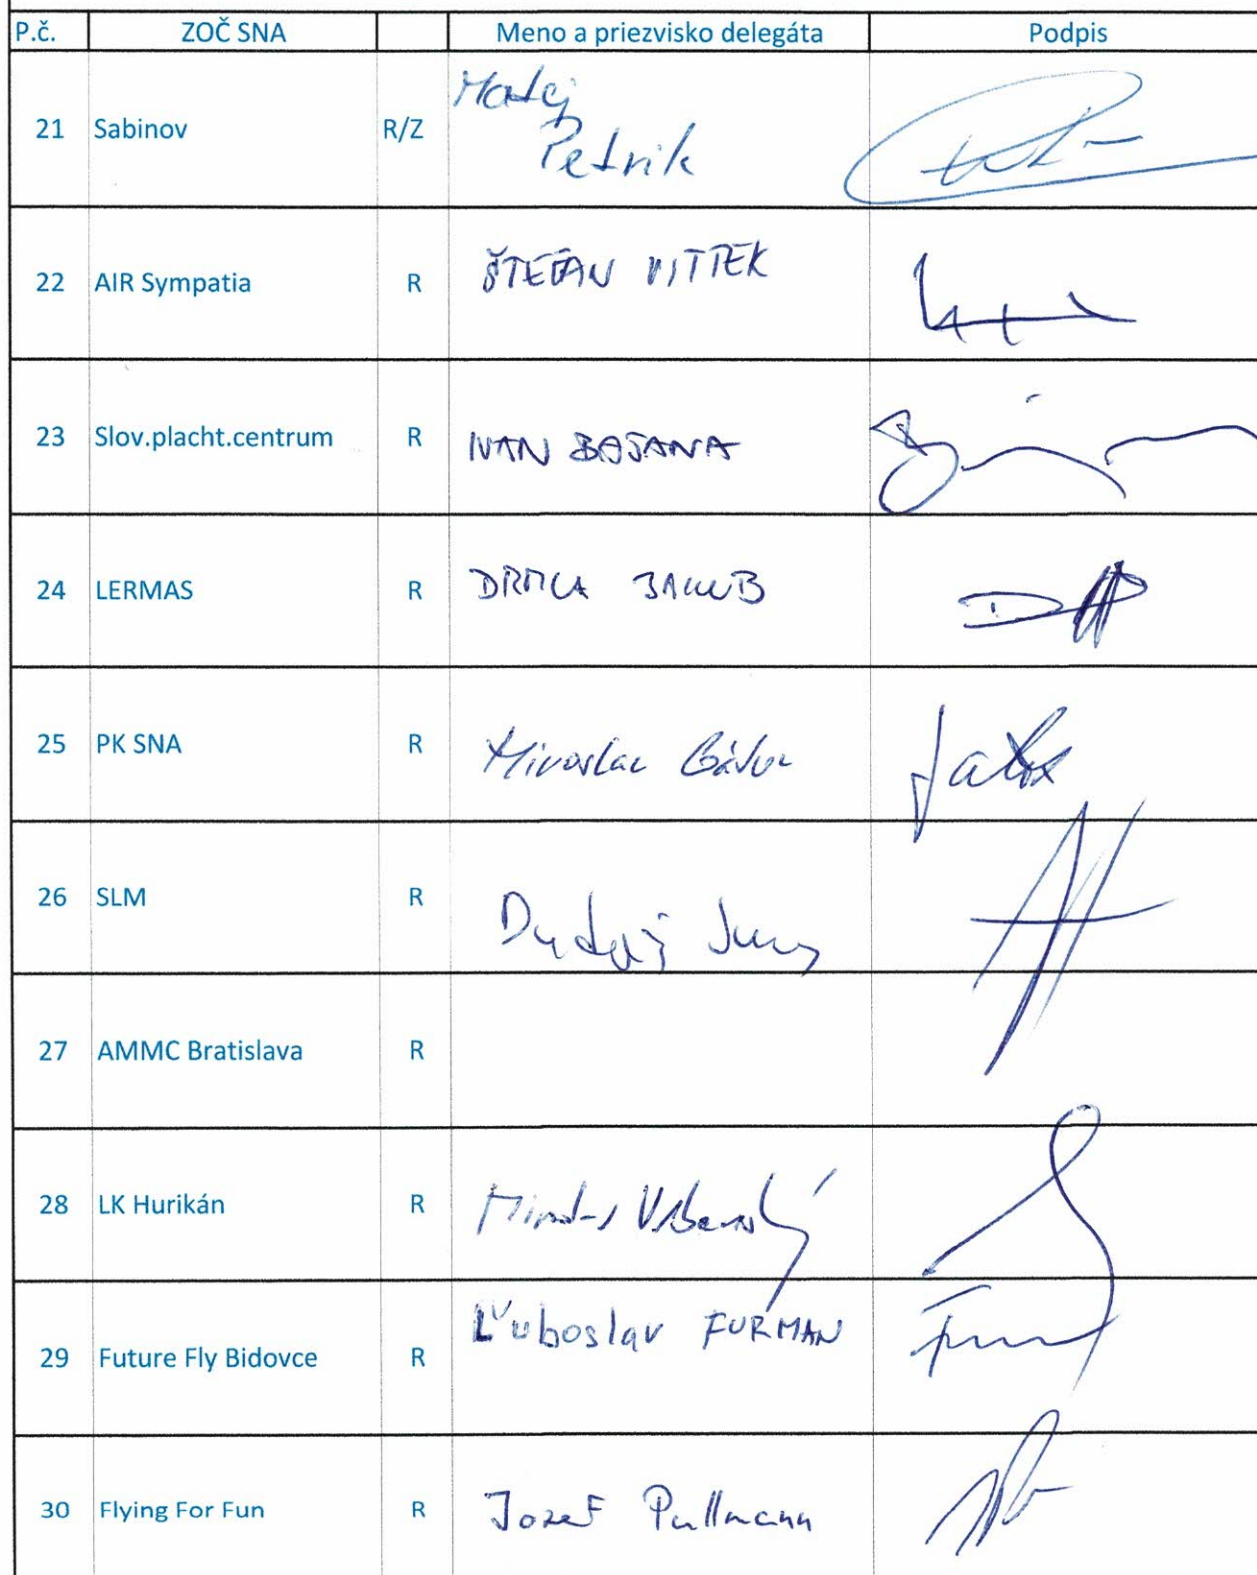 P.č. ZOČ SNA Meno a priezvisko delegáta Podpis
21 Sabinov R/Z Matej
Petrik
22 AIR Sympatia R ŠTEFAN VITTEK
23 Slov.placht.centrum R IVAN
24 LERMAS R DRMLA JAKUB
25 PK SNA R Miroslav Gábor
26 SLM R Juraj
27 AMMC Bratislava R
28 LK Hurikán R
29 Future Fly Bidovce R Ľuboslav FURMAN
30 Flying For Fun R Jozef Pullmann